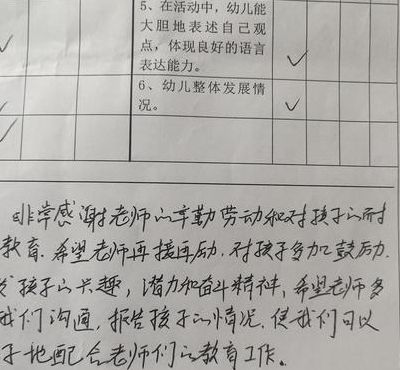 5、在活动中，幼儿能
大胆地表述自己观
点，体现良好的语言
表达能力。
6、幼儿整体发展情
况。
非常感谢老师的辛勤劳动和对孩子的耐
教育。希望老师再接再励，对孩子多加鼓励，
孩子的兴趣，潜力和奋斗精神，希望老师多
我们沟通，报告孩子的情况，使我们可以
子地配合老师们的教育工作。